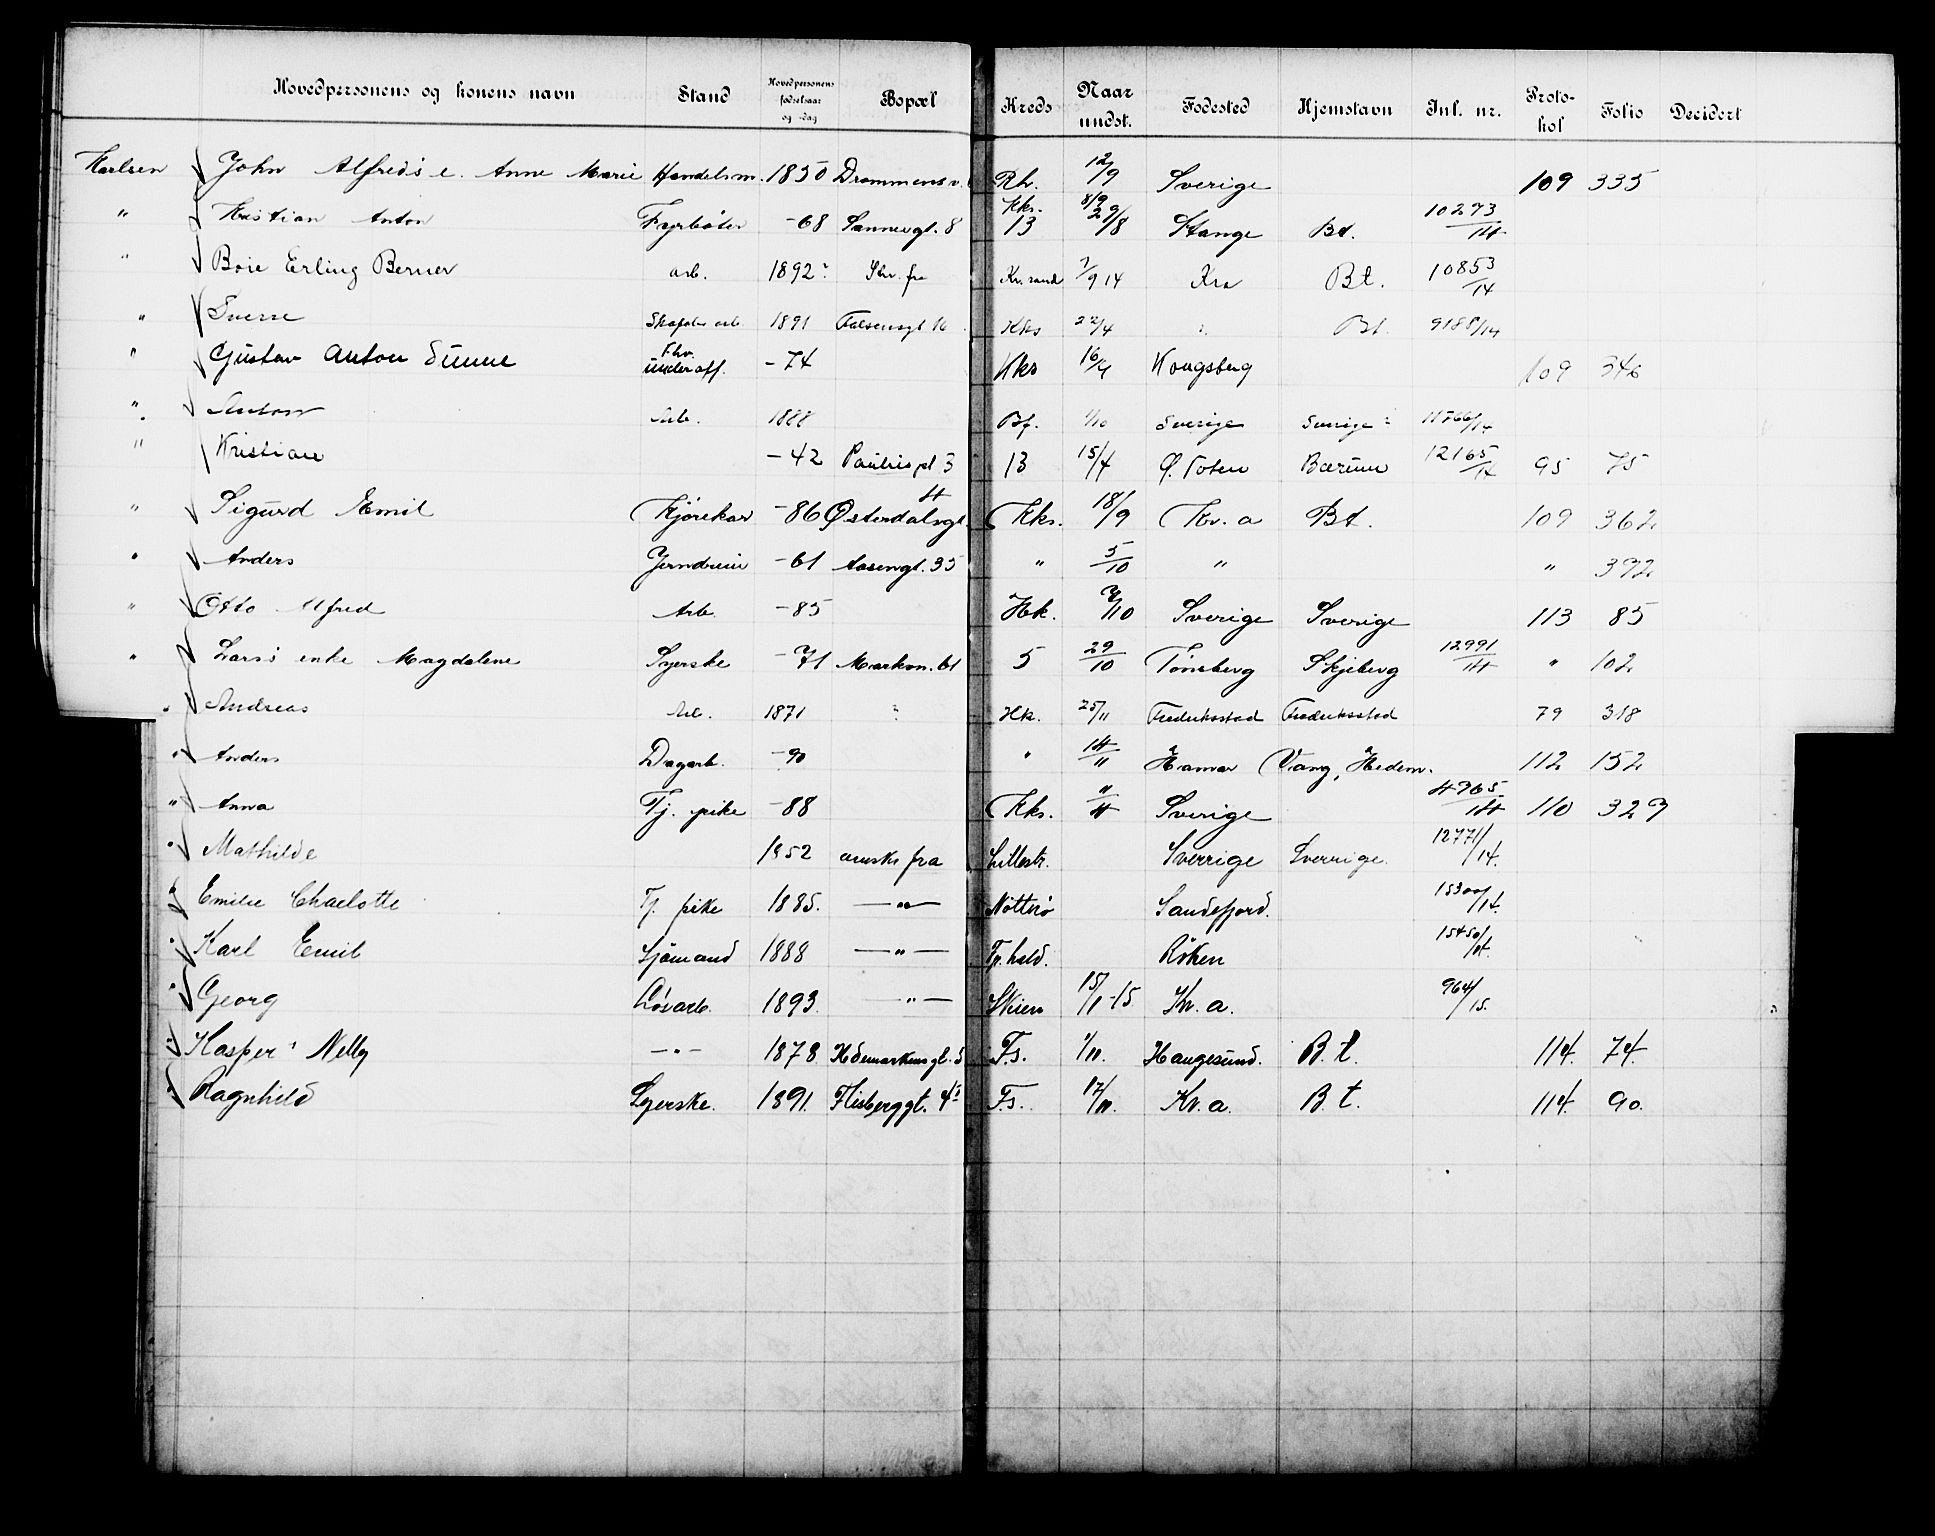 Hovedpersonens og konens navn Stand Hovedpersonens fødselsaar og -dag Bopæl Kreds Naar undst. Fødested Hjemstavn Inl. nr. Proto-kol Folio Decidert
Karlsen John Alfreds e. Anne Marie Handelsm. 1850 Drammensv. Rh. 12/9 Sverige 109 335
" Kristian Anton Fyrbøter -68 Sannergt. 8 Kks. 13 8/9 29/8 Stange Bt. 10273/14
" Boie Erling Berner arb. 1892 Skr. fra Kr.sand 7/9 14 Kra Bt. 10853/14
" Sverre arb. 1891 Falsensgt 16 Kks 22/4 " Bt. 9188/14
" Gustav Anton Sunne Fhv. underoff. -74 Kks 16/9 Kongsberg 109 346
" Anton Arb. 1888 Bf. 1/10 Sverige Sverige 11766/14
" Kristian -42 Paulus pl 3 13 15/4 Ø. Toten Bærum 12165/14 95 75
" Sigurd Emil Kjørekar -86 Østerdalsgt. 4 Kks. 18/9 Kr. a Bt. 109 362
" Anders Jerndreier -61 Aasengt. 35 " 5/10 " " 392
" Otto Alfred Arb. -85 Hk. 7/10 Sverige Sverige 113 85
" Lars's enke Magdalene Syerske -71 Markvn. 61 5 29/10 Tønsberg Skjeberg 12991/14 " 102
" Andreas Arb. 1871 Hk. 25/11 Frederiksstad Frederiksstad 79 318
" Anders Dagarb. -90 " 14/11 Hamar Vang, Hedem. 112 152
" Anna Tj. pike -88 Kks. 11/4 Sverige 4965/14 110 329
" Mathilde 1852 ønske fra Lillestr. Sverrige Sverrige. 12771/14.
" Emilie Charlotte Tj. pike 1885. —"— Nøtterø Sandefjord. 15300/14.
" Karl Emil Sjömand 1888 —"— Fr. hald. Röken 15450/14.
" Georg Løsarb. 1893. —"— Skien 15/1-15 Kr. a. 964/15.
" Kasper's Nelly —"— 1878 Hdemarkens gt. 1/11. Fs. Haugesund. B. t. 114. 74.
" Ragnhild Syerske. 1891. Flisberggt. 4 Fs. 12/11. Kr. a. B. t. 114. 90.